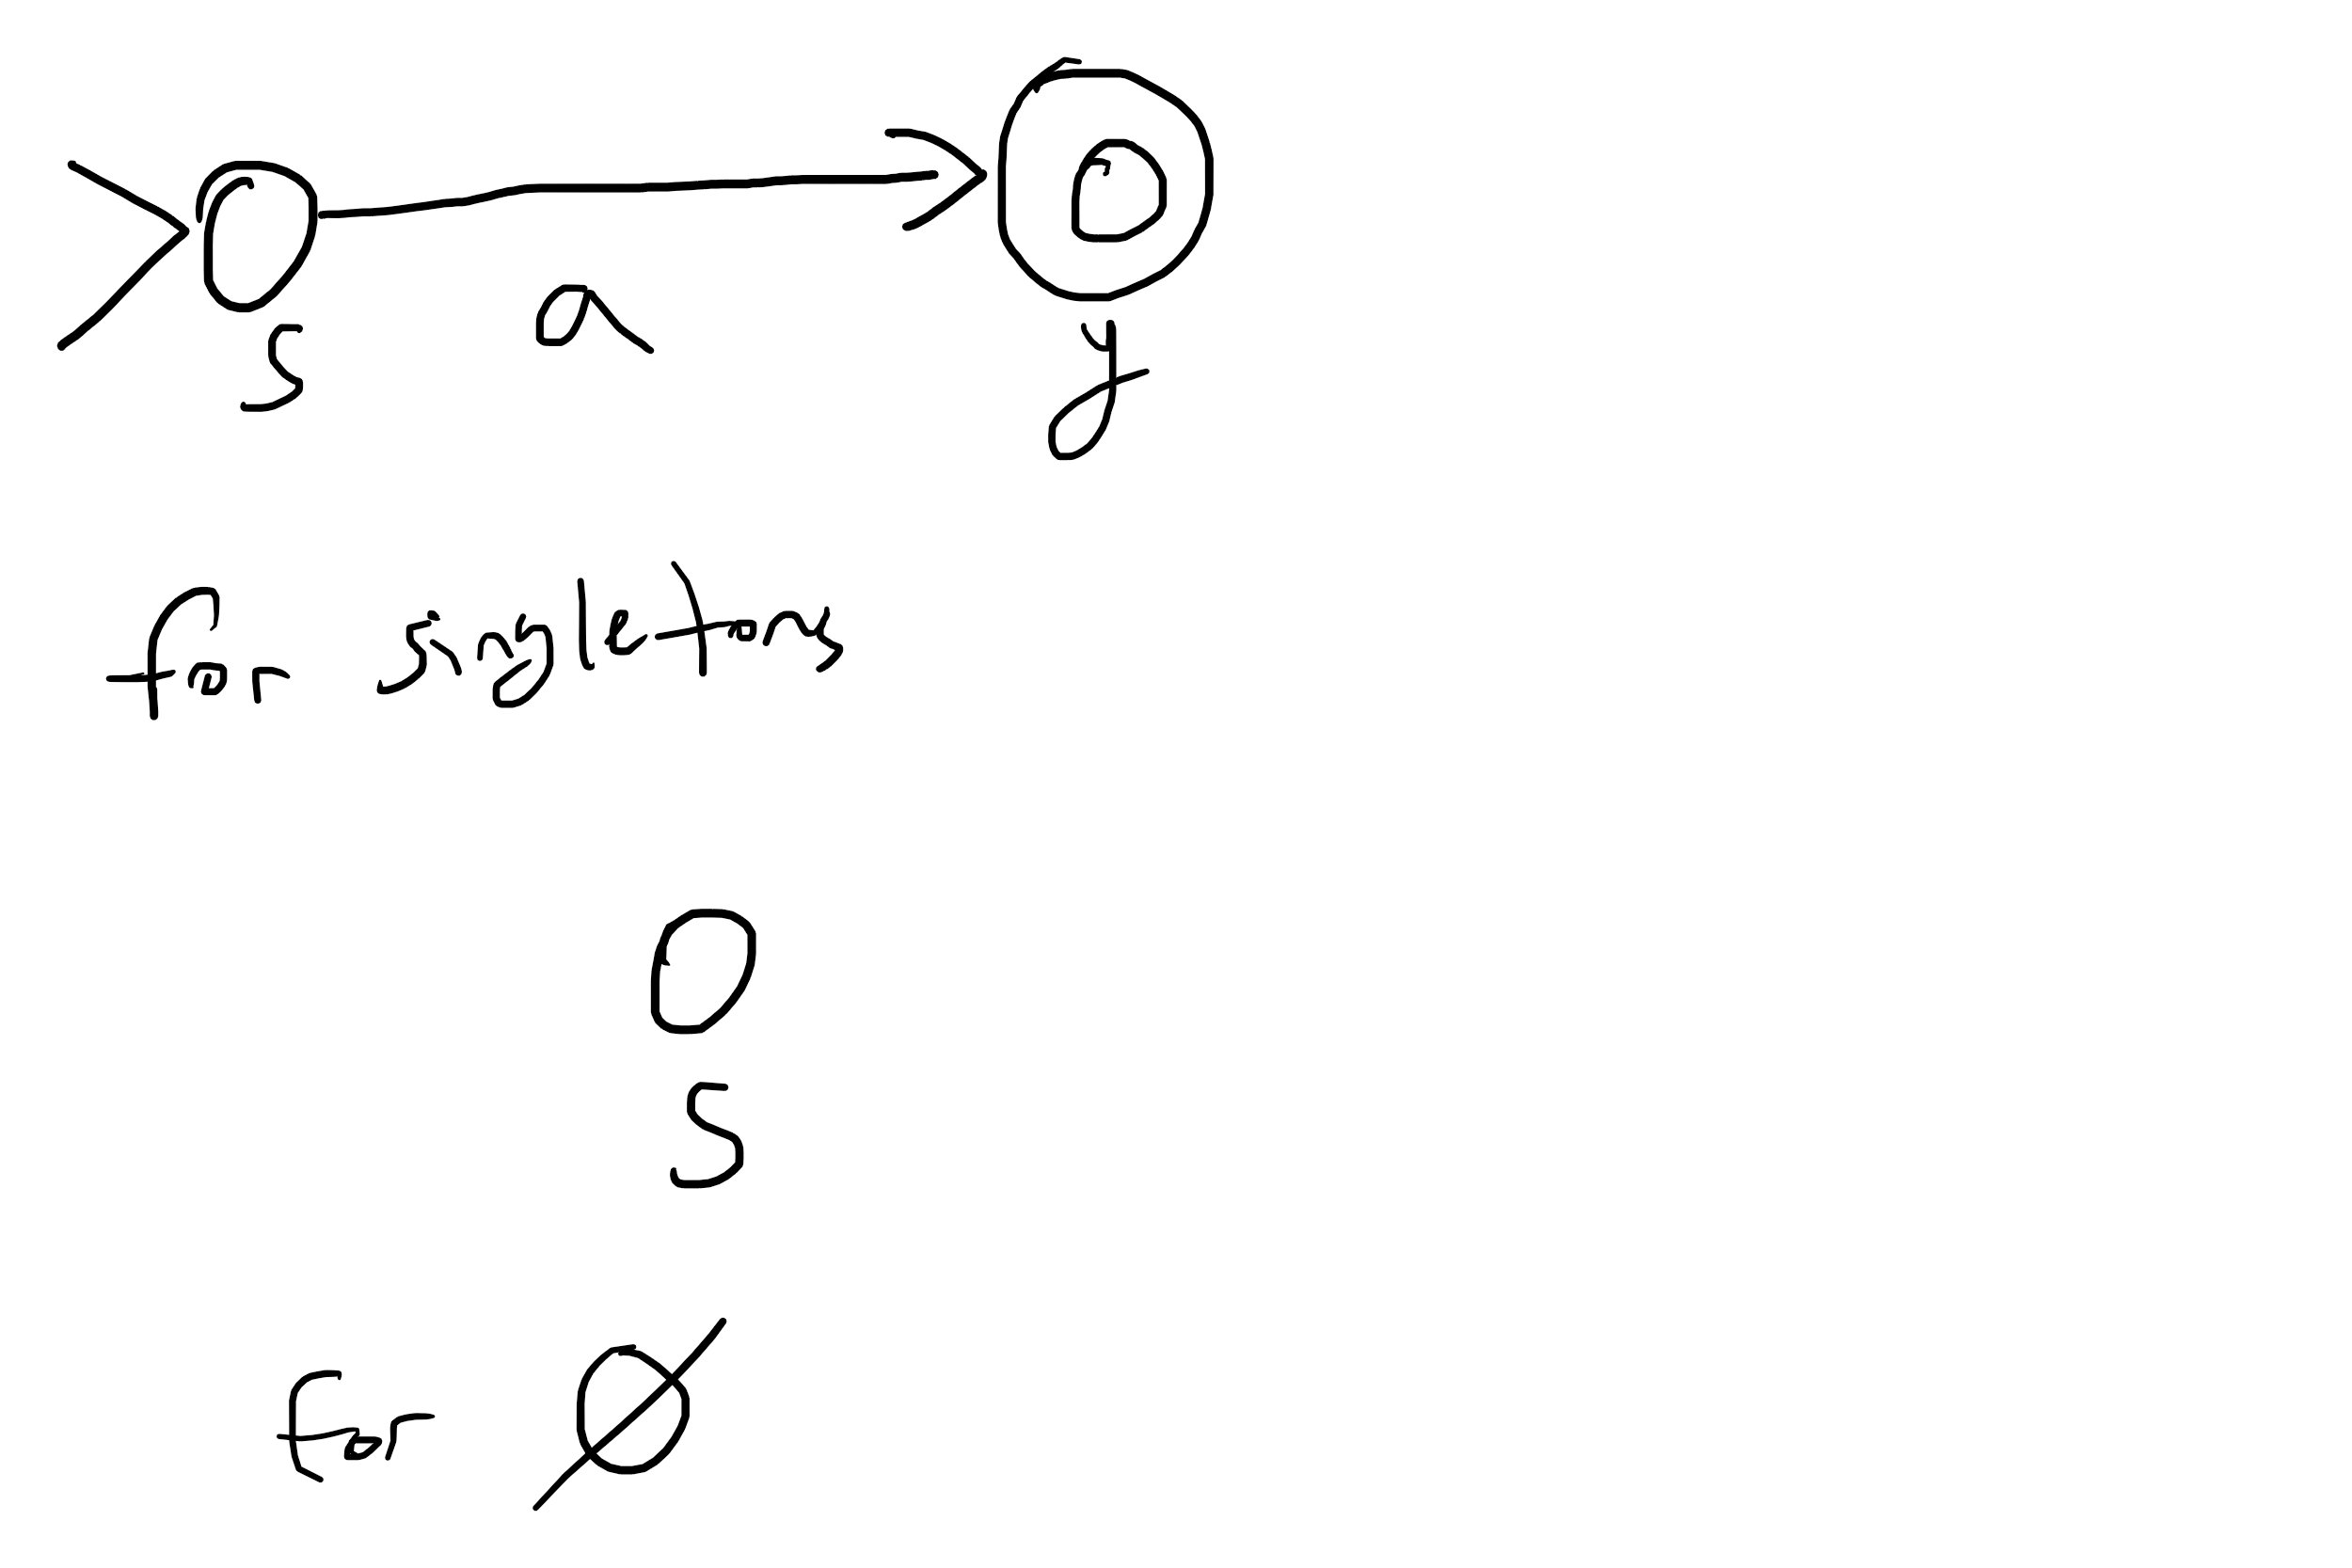 s a y
for singletons
s
For ∅